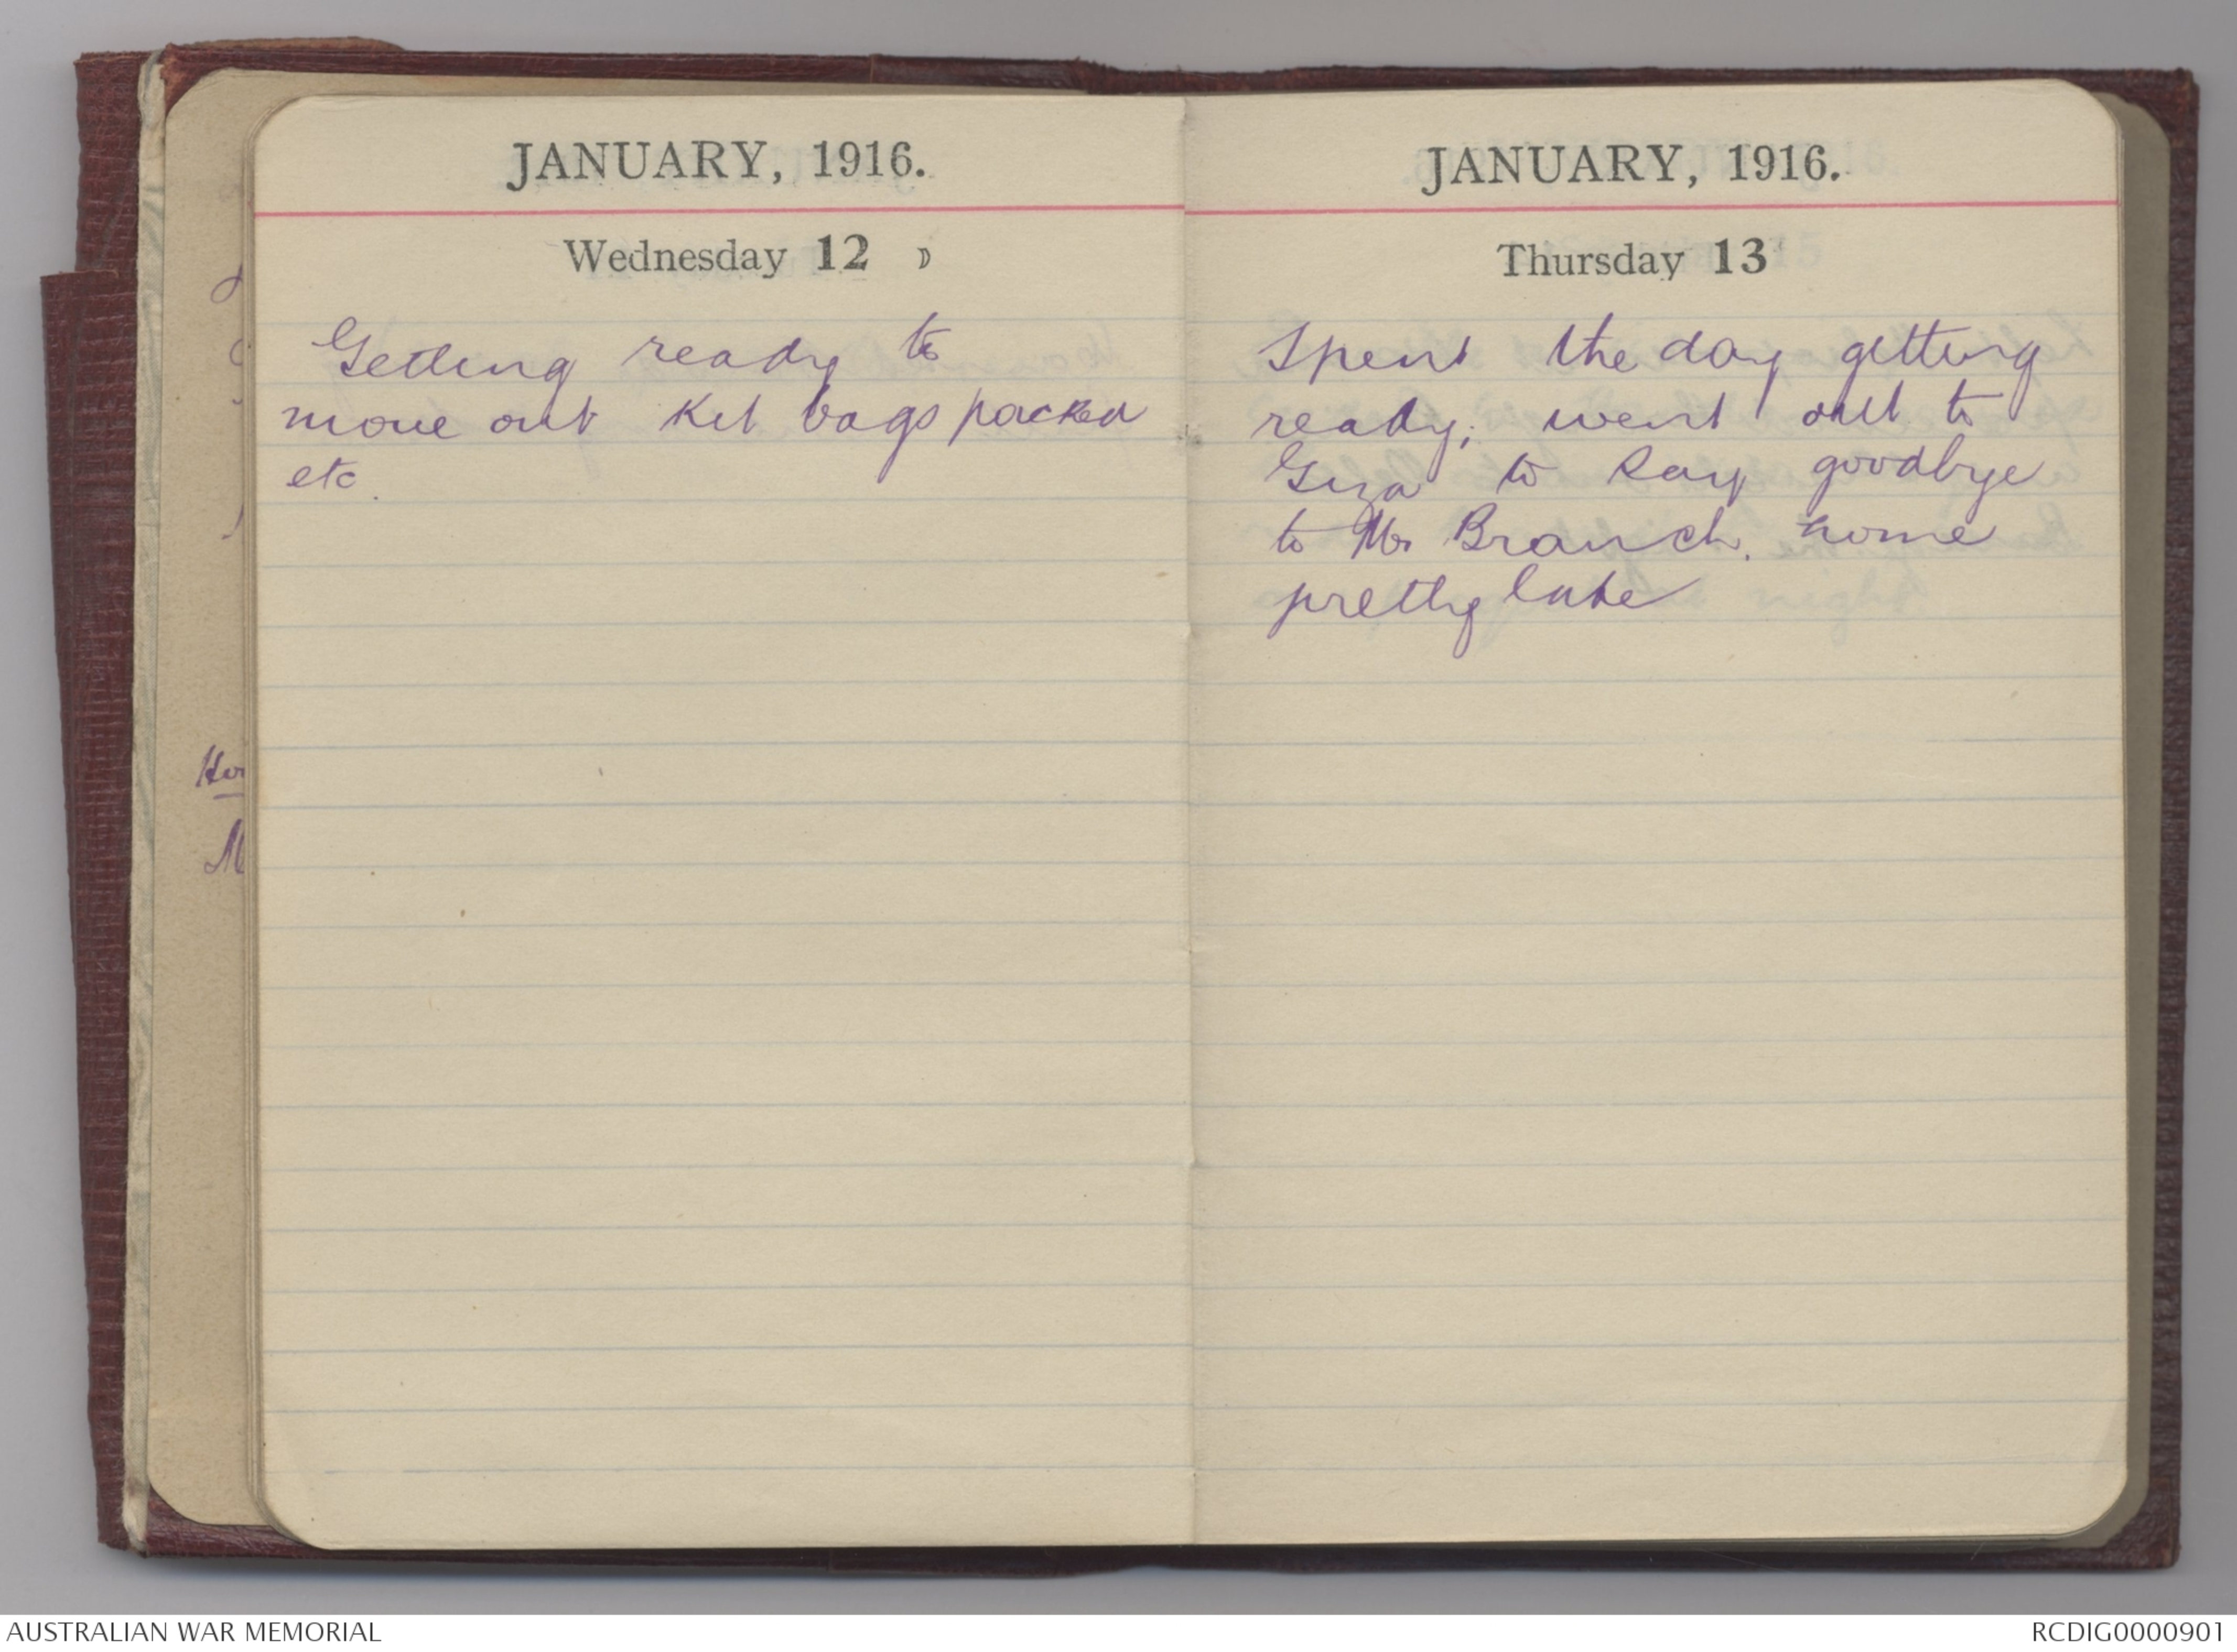 JANUARY, 1916.
Wednesday 12
Getting ready to
move out Kit bags packed
etc.
JANUARY, 1916.
Thursday 13
Spent the day getting
ready; went out to
Giza to say goodbye
to Mr Branch. home
pretty late
AUSTRALIAN WAR MEMORIAL
RCDIG0000901